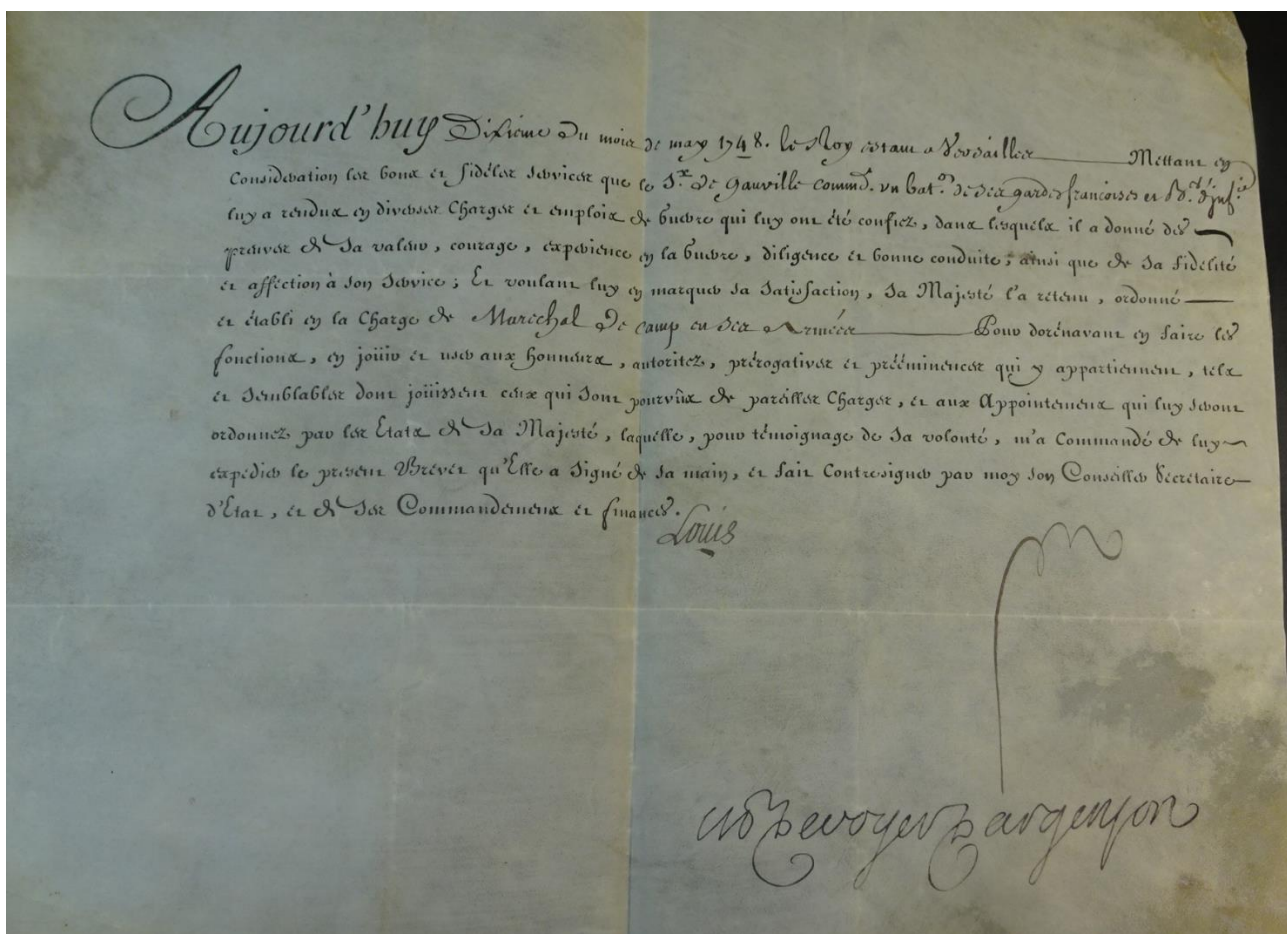 Aujourd'huy Dixieme du mois de may 1748. le Roy estant a Versailles Mettant en
Consideration les bons et fidéles services que le S.r de Gauville command.t un bat.on de ses gardes francoises et B.er d'jnf.ie
luy a rendus en diverses Charges et emplois de Guerre qui luy ont été confiez, dans lesquels il a donné des
preuves de Sa valeur, courage, experience en la Guerre, diligence et bonne conduite, ainsi que de Sa fidélité
et affection à son Service; Et voulant luy en marquer sa Satisfaction, Sa Majesté l'a retenu, ordonné
et établi en la Charge de Marechal De camp en ses Armées Pour dorénavant en faire les
fonctions, en joüir et user aux honneurs, autoritez, prérogatives et prééminences qui y appartiennent, tels
et Semblables dont joüissent ceux qui Sont pourvûs de pareilles Charges, et aux Appointemens qui luy seront
ordonnez par les États de Sa Majesté, laquelle, pour témoignage de Sa volonté, m'a Commandé de luy
expedier le present Brevet qu'Elle a Signé de sa main, et fait Contresigner par moy son Conseiller Secrétaire
d'État, et de Ses Commandemens et finances.
Louis
M De voyer D argenson